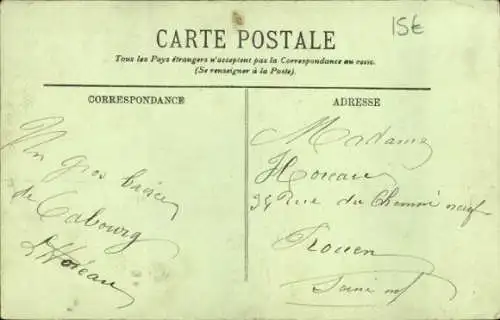 15€
CARTE POSTALE
Tous les Pays étrangers n'acceptent pas la Correspondance au recto.
(Se renseigner à la Poste).
CORRESPONDANCE
Un gros baiser
de Cabourg
ADRESSE
Madame
Hoieau
34 Rue du Chemin neuf
Rouen
Seine inf